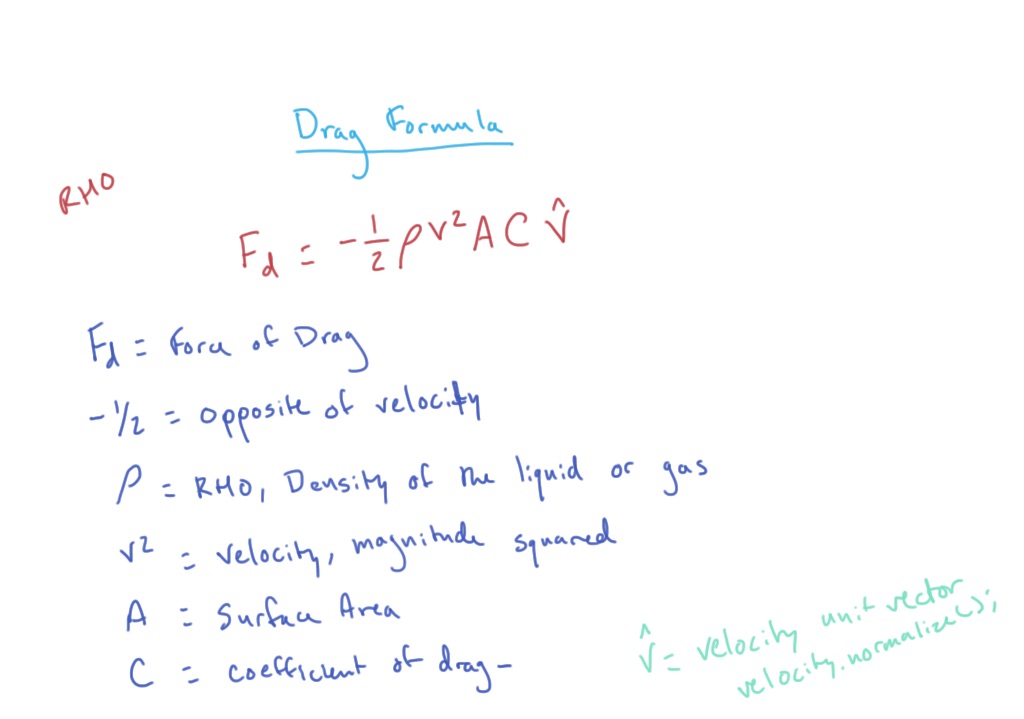 Drag Formula
RHO
F_d = -1/2 ρ v² A C v̂
F_d = Force of Drag
-1/2 = opposite of velocity
ρ = RHO, Density of the liquid or gas
v² = velocity, magnitude squared
A = Surface Area
C = coefficient of drag -
v̂ = velocity unit vector
velocity.normalize();